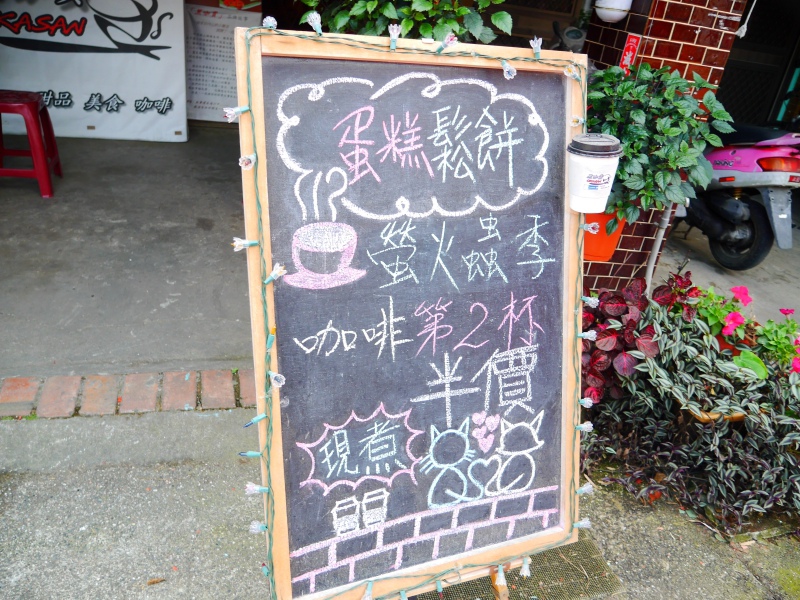 KASAN
甜品 美食 咖啡
蛋糕鬆餅
螢火蟲季
咖啡第2杯
半價
現煮